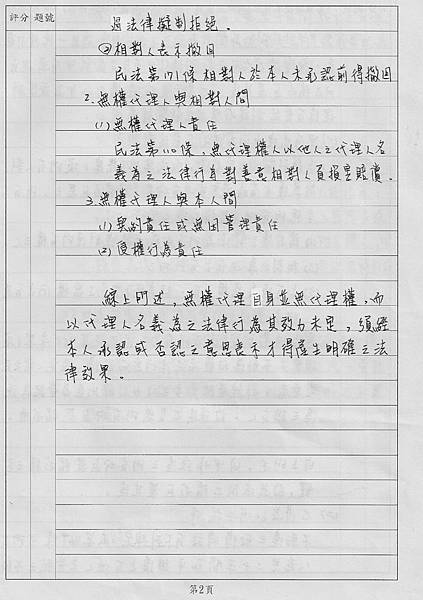 評分 題號
過法律擬制拒絕。
②相對人表示撤回
民法第171條相對人於本人未承認前得撤回
2.無權代理人與相對人間
(1)無權代理人責任
民法第110條,無代理權人以他人之代理人名
義為之法律行為對善意相對人負損害賠償。
3.無權代理人與本人間
(1)契約責任或無因管理責任
(2)侵權行為責任
綜上所述,無權代理自身並無代理權,而
以代理人名義為之法律行為其效力未定,須經
本人承認或否認之意思表示才得產生明確之法
律效果。
第2頁